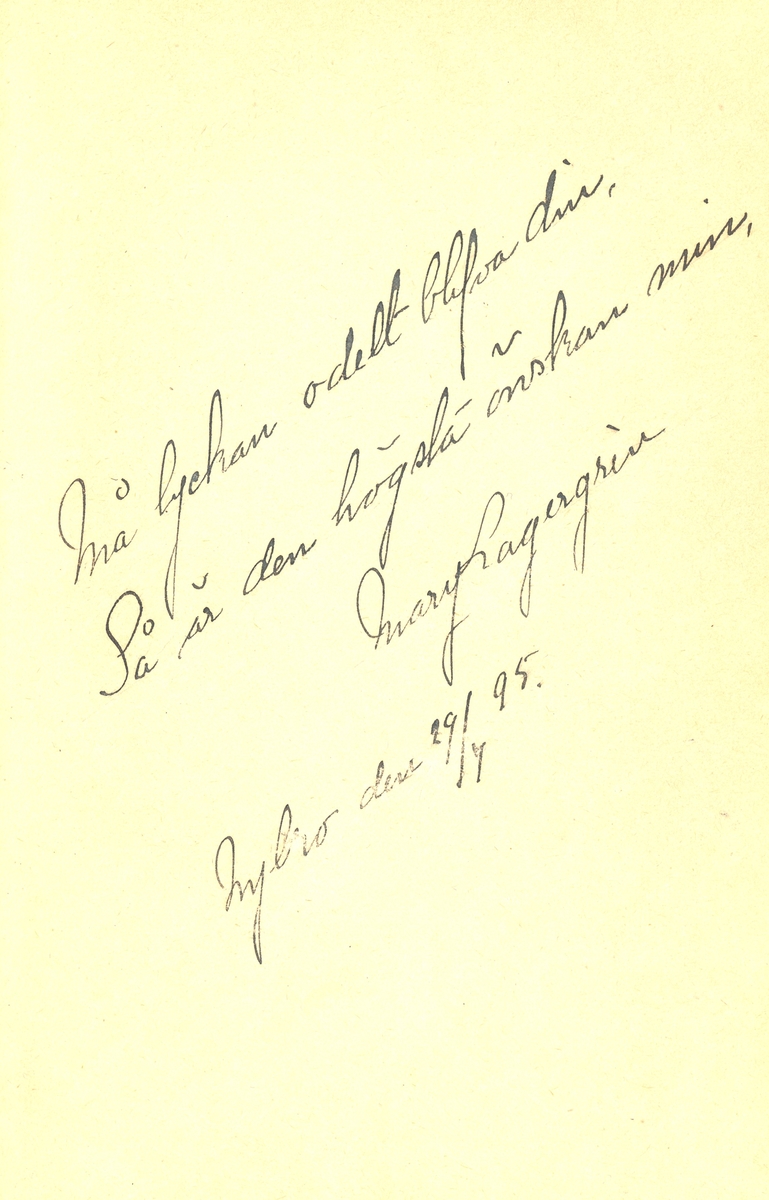 Må lyckan odelt blifva din,
Så är den högsta önskan min,
Mary Lagergren
Nybro den 29/4 95.